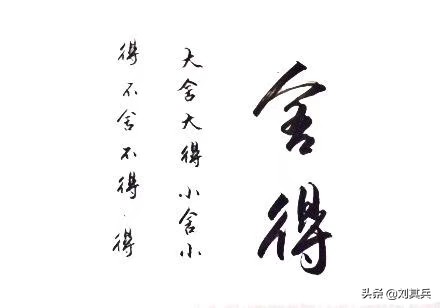 舍得
大舍大得小舍小
得不舍不得·得
头条@刘其兵